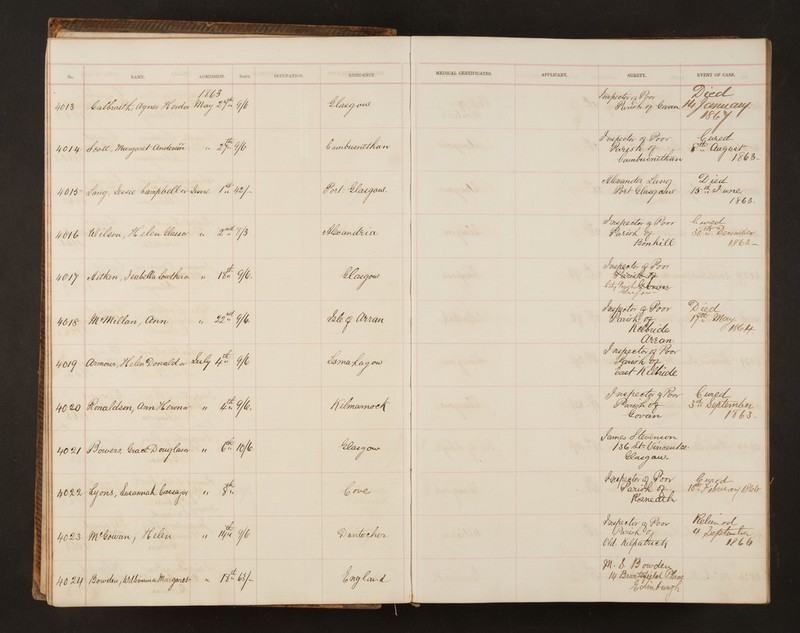 No. NAME. ADMISSION. Rate. OCCUPATION. RESIDENCE. MEDICAL CERTIFICATES. APPLICANT. SURETY. EVENT OF CASE.
1863
4013 Galbraith, Agnes May 27th 9/6 Glasgow Inspector of Poor Parish of Govan Died 14 January 1867
4014 Scott, Margaret Anderson " 27th 9/6 Cambusnethan Inspector of Poor Parish of Cambusnethan Cured 8th August 1863
4015 Lang, Jessie Campbell or June 1st 42/- Port-Glasgow Alexander Lang Port Glasgow Died 15th June 1863
4016 Wilson, Helen " 2nd 7/3 Alexandria Inspector of Poor Parish of Bonhill Cured December
4017 Aitken, Isabella " 18th 9/6 Glasgow Inspector of Poor Parish of Govan
4018 McMillan, Ann " 22nd 9/6 Isle of Arran Inspector of Poor Parish of Kilbride Arran Died 17th May 1864
4019 Armour, Helen Donald or July 4th 9/6 Lesmahagow Inspector of Poor Parish of East Kilbride
4020 Ronaldson, Ann " 4th 9/6 Kilmarnock Inspector of Poor Parish of Govan Cured 3rd September 1863
4021 Bowers, Grace Douglas " 6th 10/6 Glasgow James Stevenson 136 St Vincent St Glasgow
4022 Lyons, Susannah " 8th Cove Inspector of Poor Parish of Roseneath Cured 10th February 1866
4023 McGowan, Helen " 14th 9/6 Duntocher Inspector of Poor Parish of Old Kilpatrick Relieved September 1866
4024 Bowden, Williamina Margaret " 18th 63/- England M. S. Bowden 14 Bruntsfield Place Edinburgh